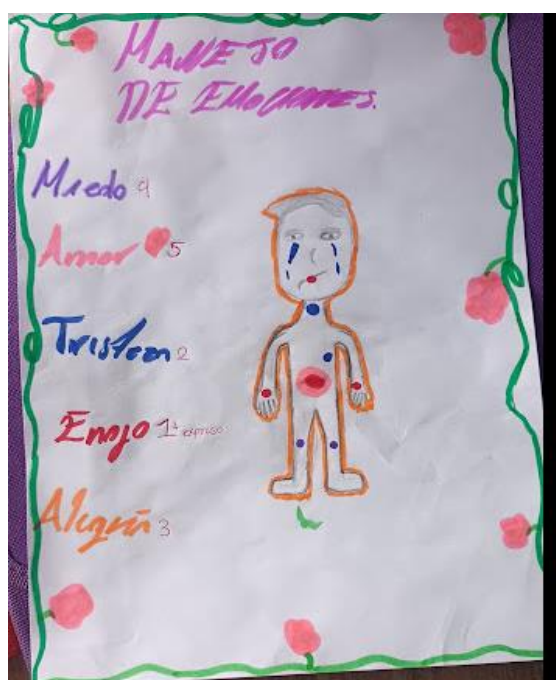 MANEJO
DE EMOCIONES.
Miedo 4
Amor 5
Tristeza 2
Enojo 1+ expreso
Alegria 3